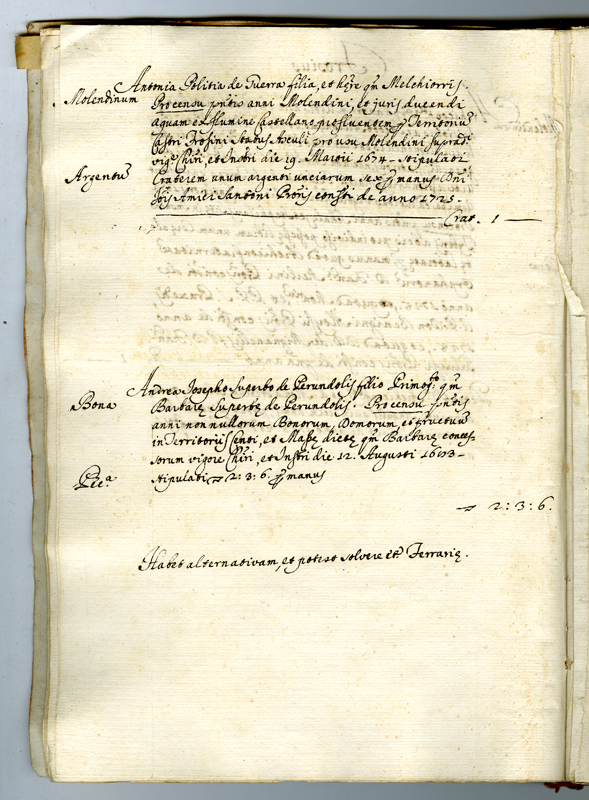 Antonia Politia de Guerra filia, et hęre qm Melchiorris.
Molendinum
Pro censu pntis anni Molendini, et juris ducendi
aquam ex flumine Castellano profluentem p Territoriũ
Castri Trosini Status Asculi pro usu Molendini suprad.
vige Chiri, et Instri die 19. Martii 1674 - stipulati
Argentũ
Craterem unum argenti unciarum sex p manus Dni
Amici Santoni consti de anno 1725.
Crat. 1
Andreę Josepho Superbo de Perundolis filio Primog. qm
Bona
Barbarę Superbę de Perundolis. Pro censu pntis
anni nonnullorum Bonorum, Domorum et fructuũ
in Territoriis Centi, et Massę dictę qm Barbarę conces-
sorum vigore Chiri, et Instri die 12. Augusti 1693 -
Pec.a
stipulati 2: 3: 6 p manus
2: 3: 6.
Habet alternativam, et potest solvere Ferrarię.